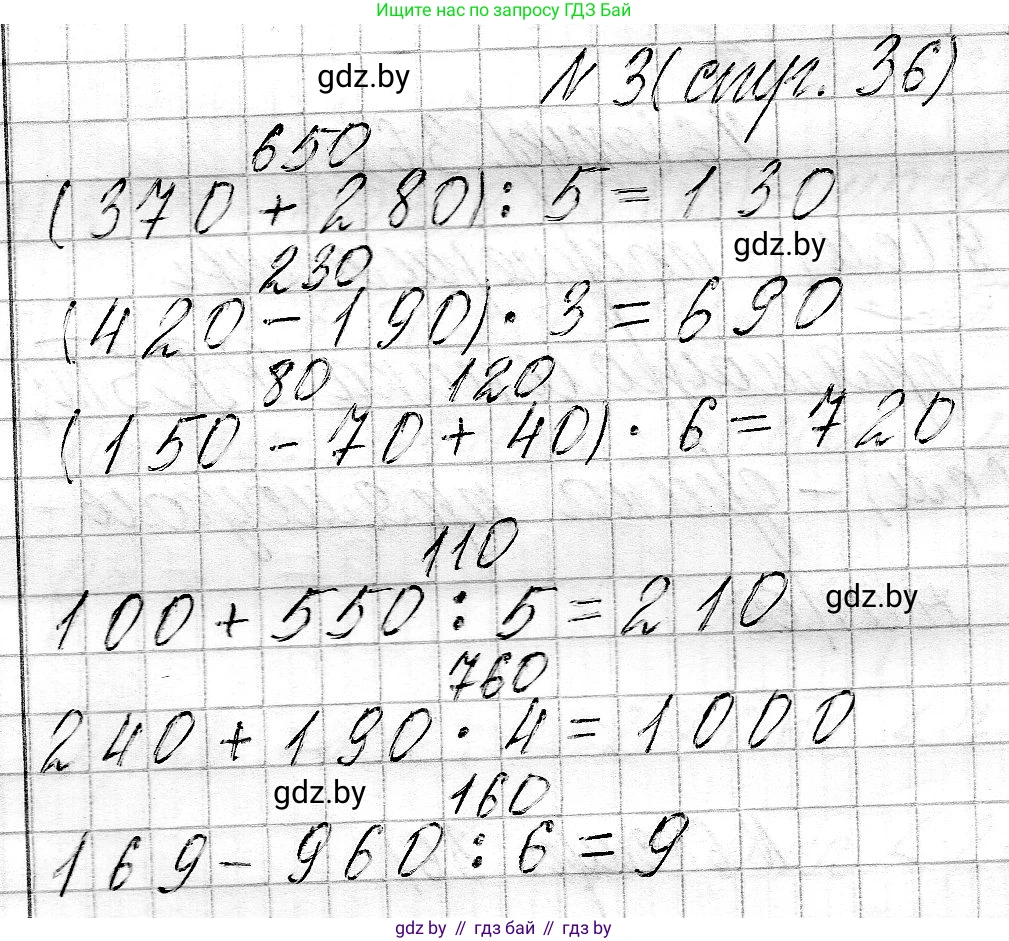 Ищите нас по запросу ГДЗ Бай
gdz.by
N 3 (стр. 36)
650
(370 + 280) : 5 = 130
gdz.by
230
(420 - 190) · 3 = 690
80 120
(150 - 70 + 40) · 6 = 720
110
100 + 550 : 5 = 210
gdz.by
760
240 + 190 · 4 = 1000
gdz.by
160
169 - 960 : 6 = 9
gdz.by // гдз бай // гдз by